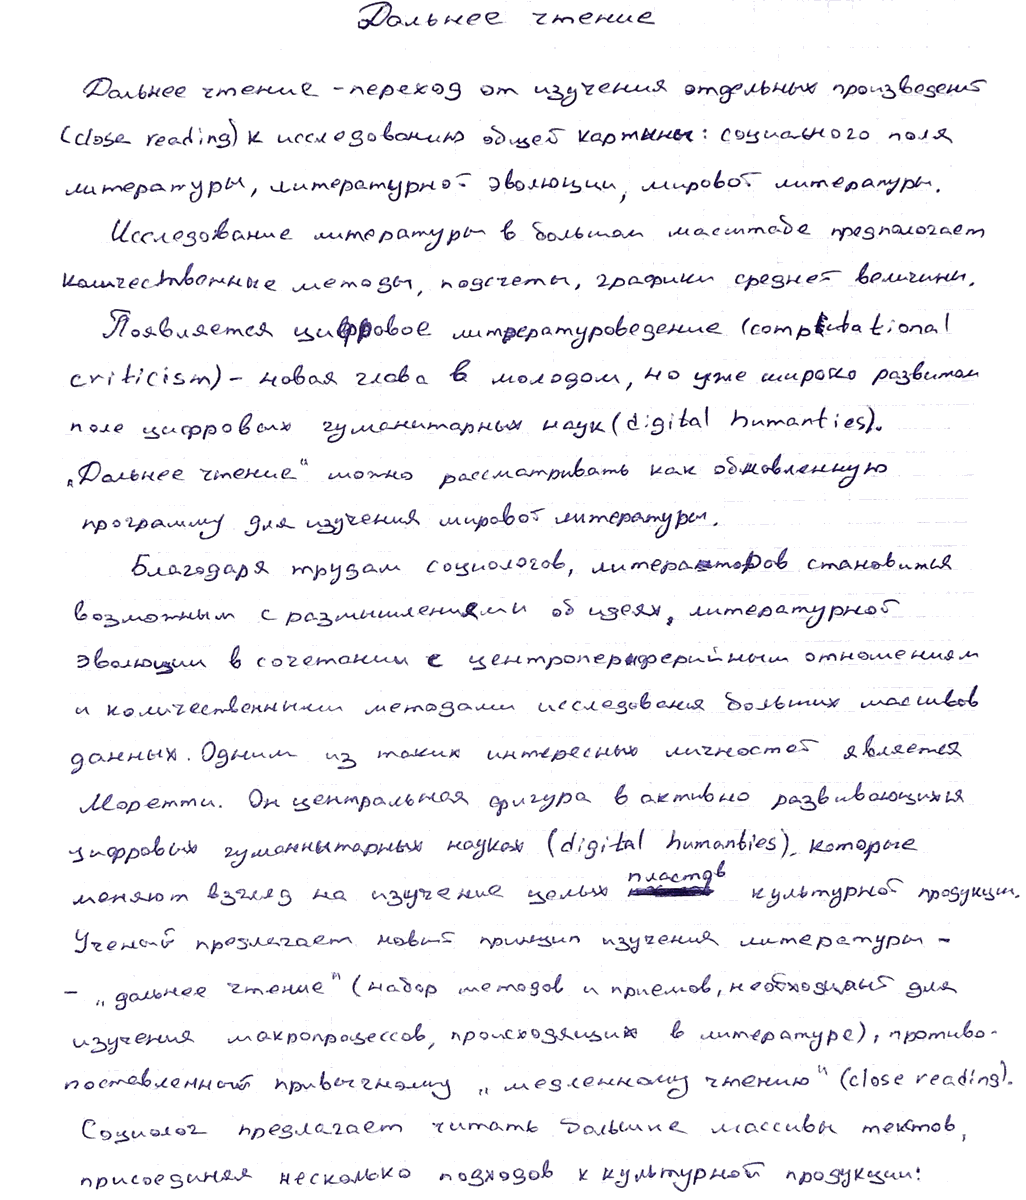 Дальнее чтение
Дальнее чтение - переход от изучения отдельных произведений
(close reading) к исследованию общей картины: социального поля
литературы, литературной эволюции, мировой литературы.
Исследование литературы в большом масштабе предполагает
количественные методы, подсчеты, графики средней величины.
Появляется цифровое литературоведение (computational
criticism) - новая глава в молодом, но уже широко развитом
поле цифровых гуманитарных наук (digital humanties).
„Дальнее чтение“ можно рассматривать как обновленную
программу для изучения мировой литературы.
Благодаря трудам социологов, литераторов становится
возможным с размышлениями об идеях, литературной
эволюции в сочетании с центроперифериййным отношениям
и количественными методами исследования больших массивов
данных. Одним из таких интересных личностей является
Моретти. Он центральная фигура в активно развивающихся
цифровых гуманнытарных науках (digital humanties), которые
меняют взгляд на изучение целых пластов культурной продукции.
Ученый предлагает новый принцип изучения литературы -
- „дальнее чтение“ (набор методов и приемов, необходимый для
изучения макропроцессов, происходящих в литературе), противо-
поставленный привычному „медленному чтению“ (close reading).
Социолог предлагает читать большие массивы текстов,
присоединяя несколько подходов к культурной продукции: